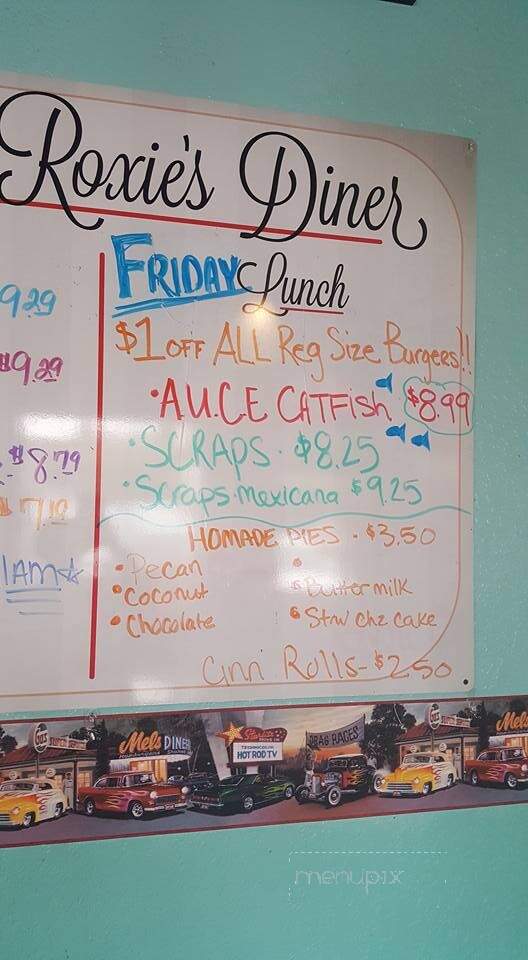 Roxie's Diner
9.29
$9.29
$8.79
7.19
IAM☆
FRIDAY Lunch
$1 OFF ALL Reg Size Burgers!!
• A.U.C.E CATFish $8.99
• SCRAPS - $8.25
• Scraps mexicana $9.25
HOMADE PIES - $3.50
• Pecan
• Coconut
• Chocolate
•
• Buttermilk
• Strw chz cake
Cinn Rolls - $2.50
Mel's DINER
Starlite
DRIVE IN
TECHNICOLOR
HOT ROD TV
DRAG RACES
Mel's
menupix